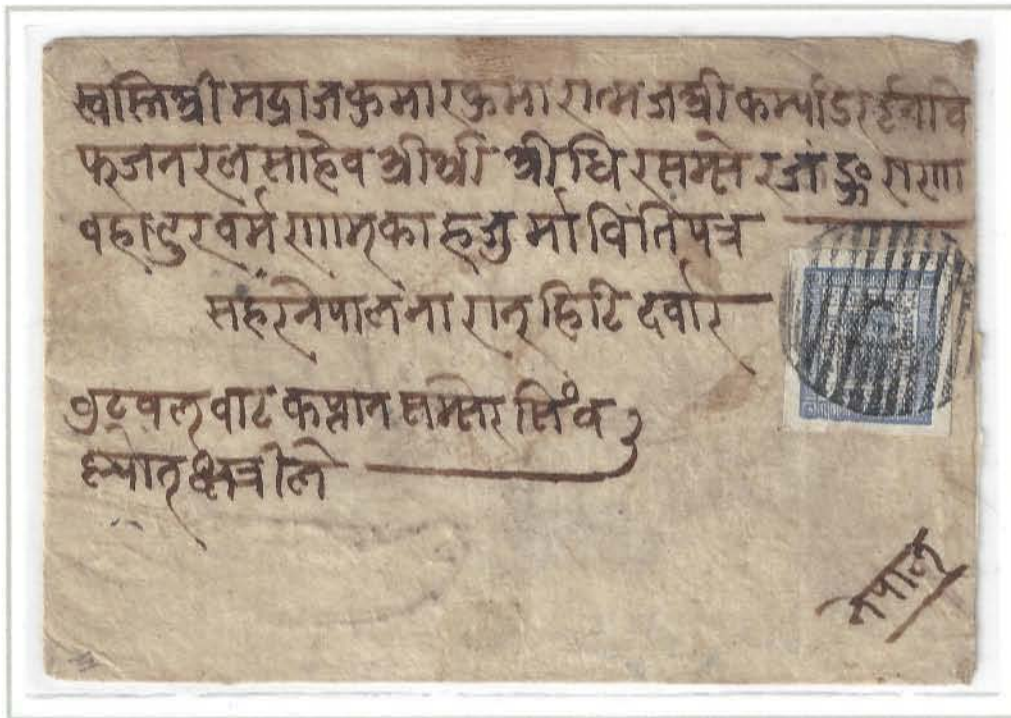 स्वस्तिश्री मद्राजकुमारकुमारात्मजश्री कम्याडर इनचि
फ् जनरल साहेव श्रीश्री श्री धिर सम्सेर जङ्ग राणा
वहादुर वर्म राणाम् का हजुर्मा विंतिपत्र
सहर नेपाल नारान् हिटि दर्वार
वुटवल वाट कप्तान सम्सेर सिंव
क्षत्रीले
नेपाल्